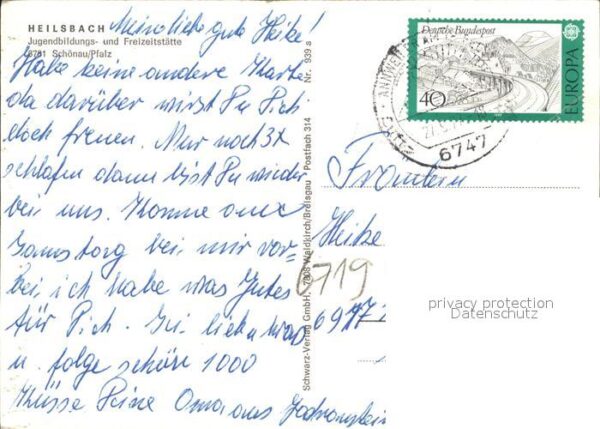 HEILSBACH
Jugendbildungs- und Freizeitstätte
6781 Schönau/Pfalz
Meine liebe gute Heike!
Habe keine andere Karte
da darüber wirst Du Dich
doch freuen. Nur noch 3x
schlafen dann bist Du wieder
bei uns. Komme am
Samstag bei mir vor-
bei, ich habe was Gutes
für Dich. Sei lieb
u. folge schöne 1000
Küsse Deine Oma aus
Nr. 939 a
Schwarz-Verlag GmbH, 7808 Waldkirch/Breisgau · Postfach 314
Deutsche Bundespost
40
EUROPA
6747
Fräulein
Heike
6719
privacy protection
Datenschutz